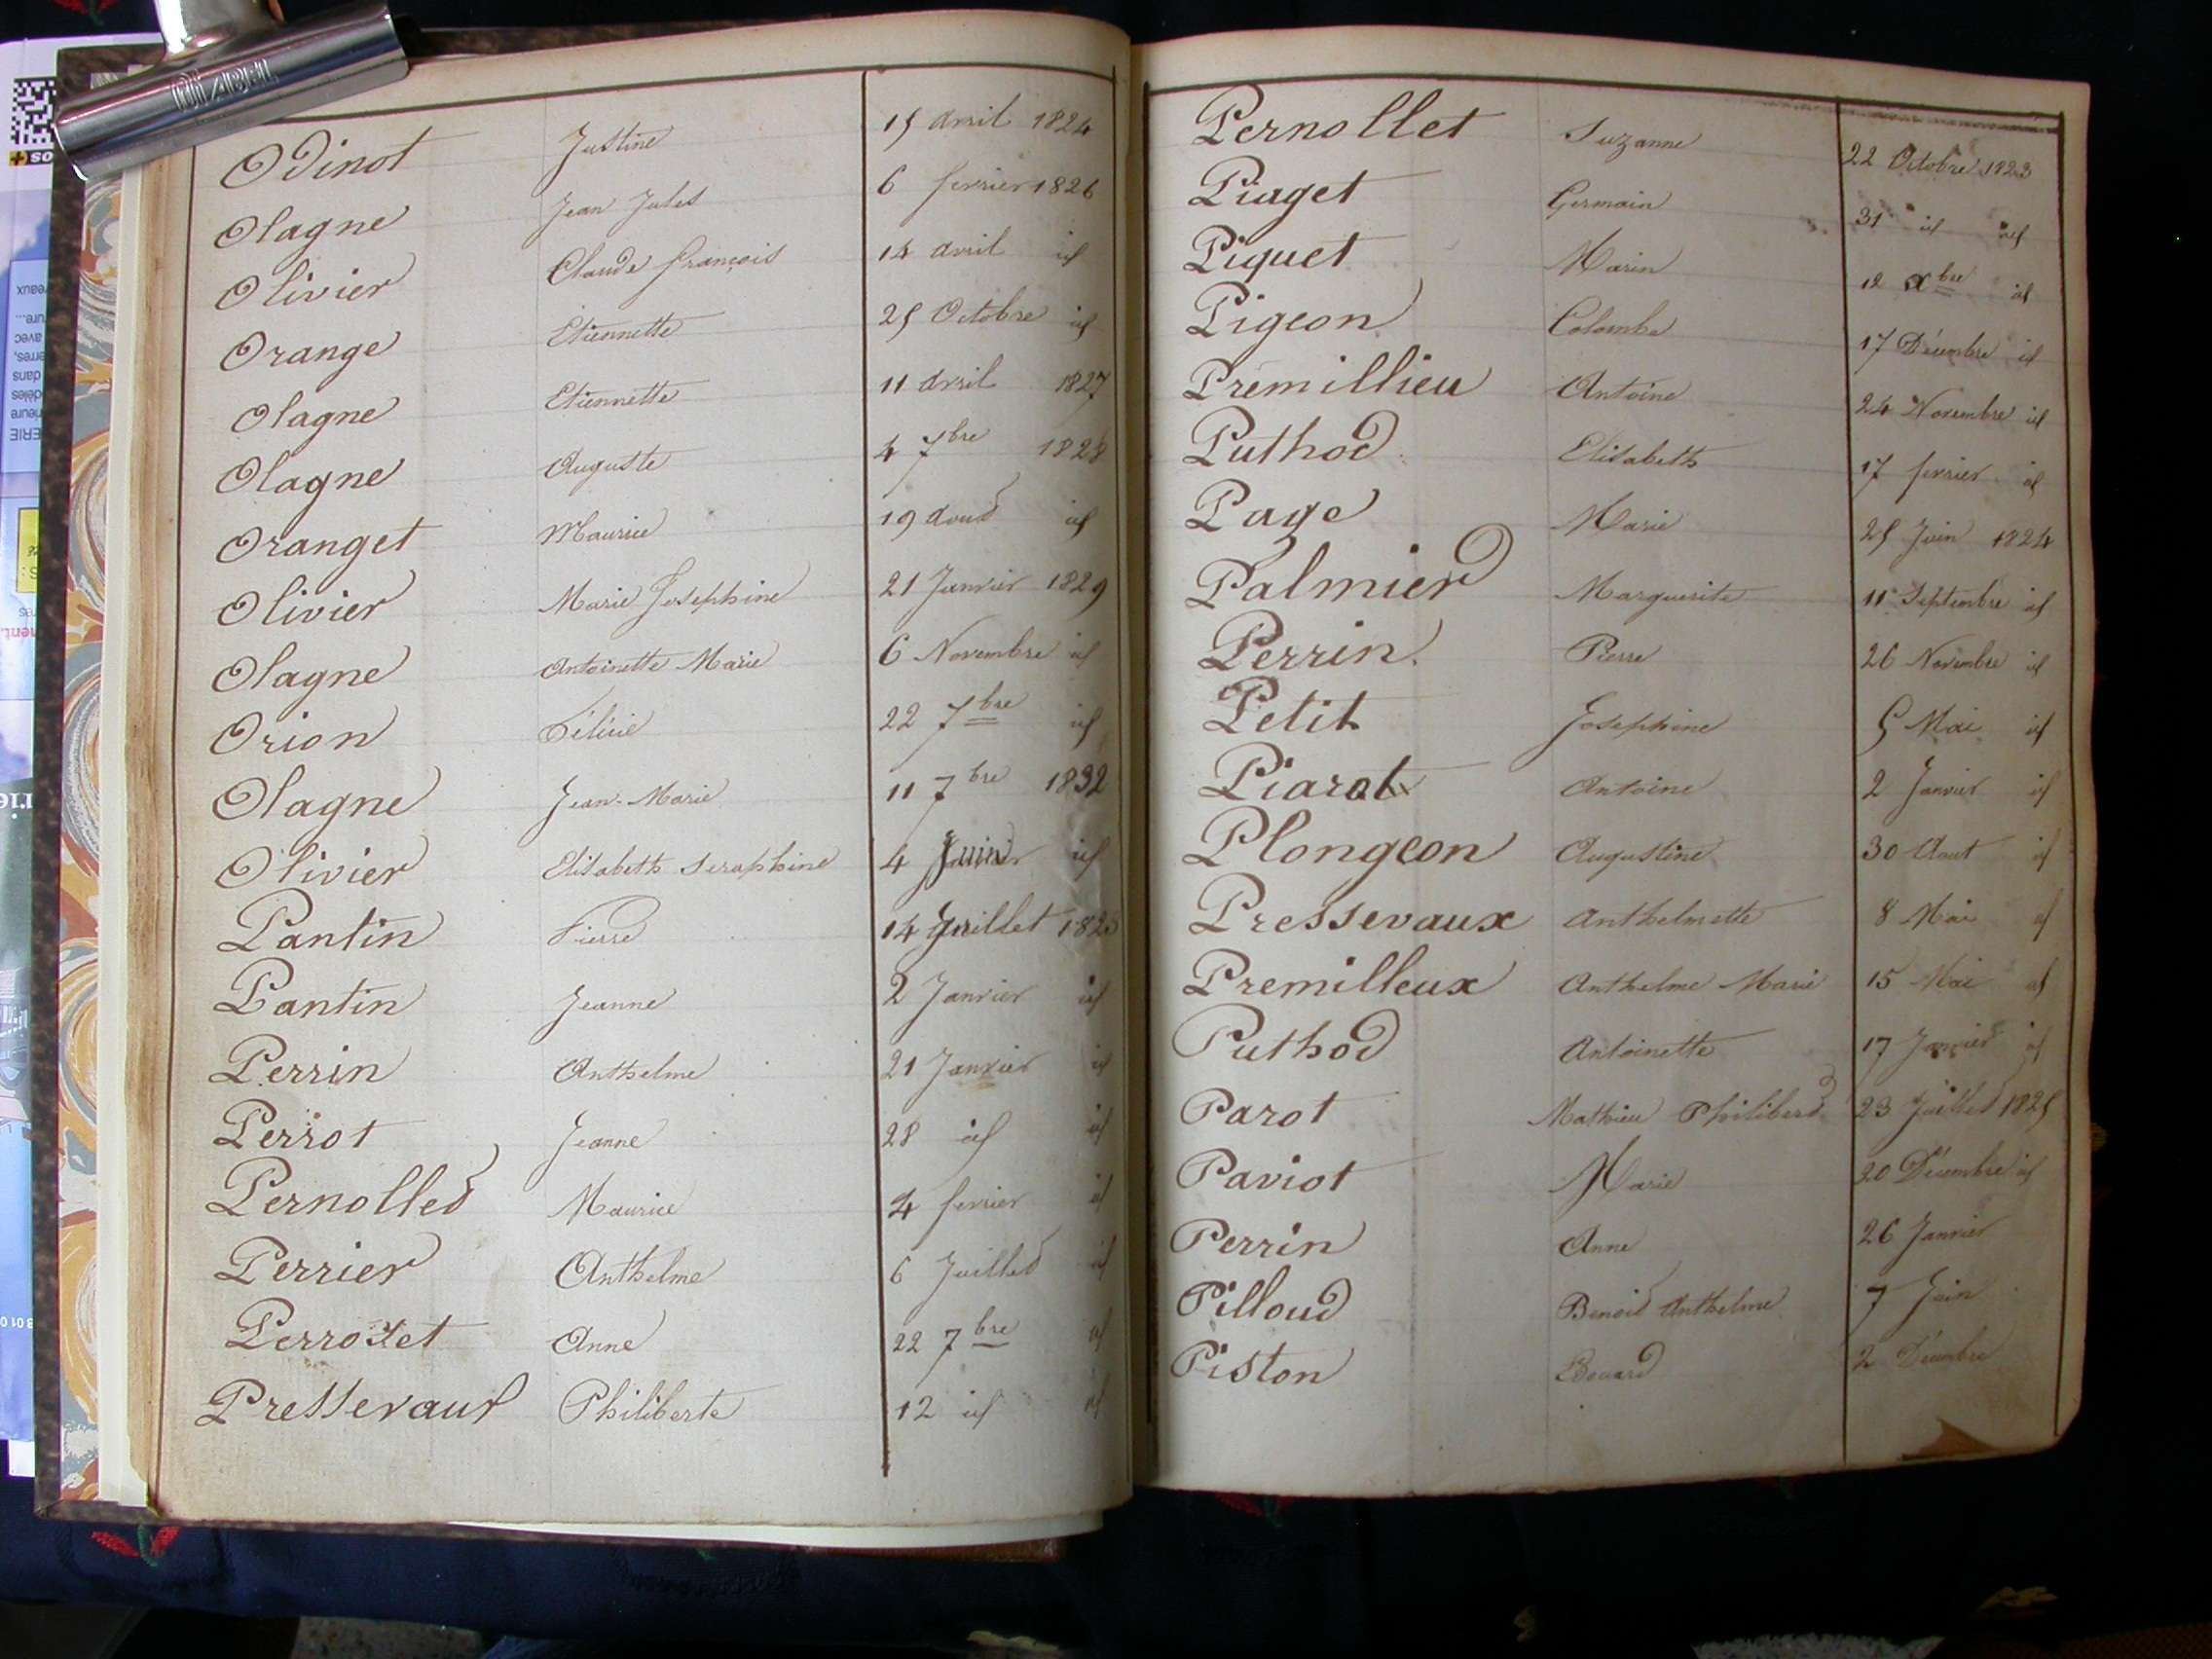 DIABEL
Odinot Justine 15 avril 1824
Olagne Jean Jules 6 fevrier 1826
Olivier Claude françois 14 avril id
Orange Etiennette 25 Octobre id
Olagne Etiennette 11 avril 1827
Olagne Auguste 4 7bre 1828
Oranget Maurice 19 aout id
Olivier Marie Josephine 21 Janvier 1829
Olagne Antoinette Marie 6 Novembre id
Orion Félicie 22 7bre id
Olagne Jean-Marie 11 7bre 1832
Olivier Elisabeth Seraphine 4 Juin id
Pantin Pierre 14 Juillet
Pantin Jeanne 2 Janvier id
Perrin Anthelme 21 Janvier id
Perrot Jeanne 28 id id
Pernollet Maurice 4 fevrier id
Perrier Anthelme 6 Juillet id
Perrotet Anne 22 7bre id
Pressevaux Philiberte 12 id id
Pernollet Suzanne 22 Octobre 1823
Piaget Germain 31 id id
Piguet Marin 12 xbre id
Pigeon Colombe 17 Décembre id
Premillieu Antoine 24 Novembre id
Puthod Elisabeth 17 fevrier id
Page Marie 25 Juin 1824
Palmier Marguerite 11 Septembre id
Perrin Pierre 26 Novembre id
Petit Josephine 5 Mai id
Piarot Antoine 2 Janvier id
Plongeon Augustine 30 Aout id
Pressevaux Anthelmette 8 Mai id
Premilleux Anthelme Marie 15 Mai id
Puthod Antoinette 17 Janvier id
Parot Mathieu Philibert 23 Juillet 1825
Paviot Marie 20 Décembre id
Perrin Anne 26 Janvier
Pilloud Benoit Anthelme 7 Juin
Piston 2 Décembre